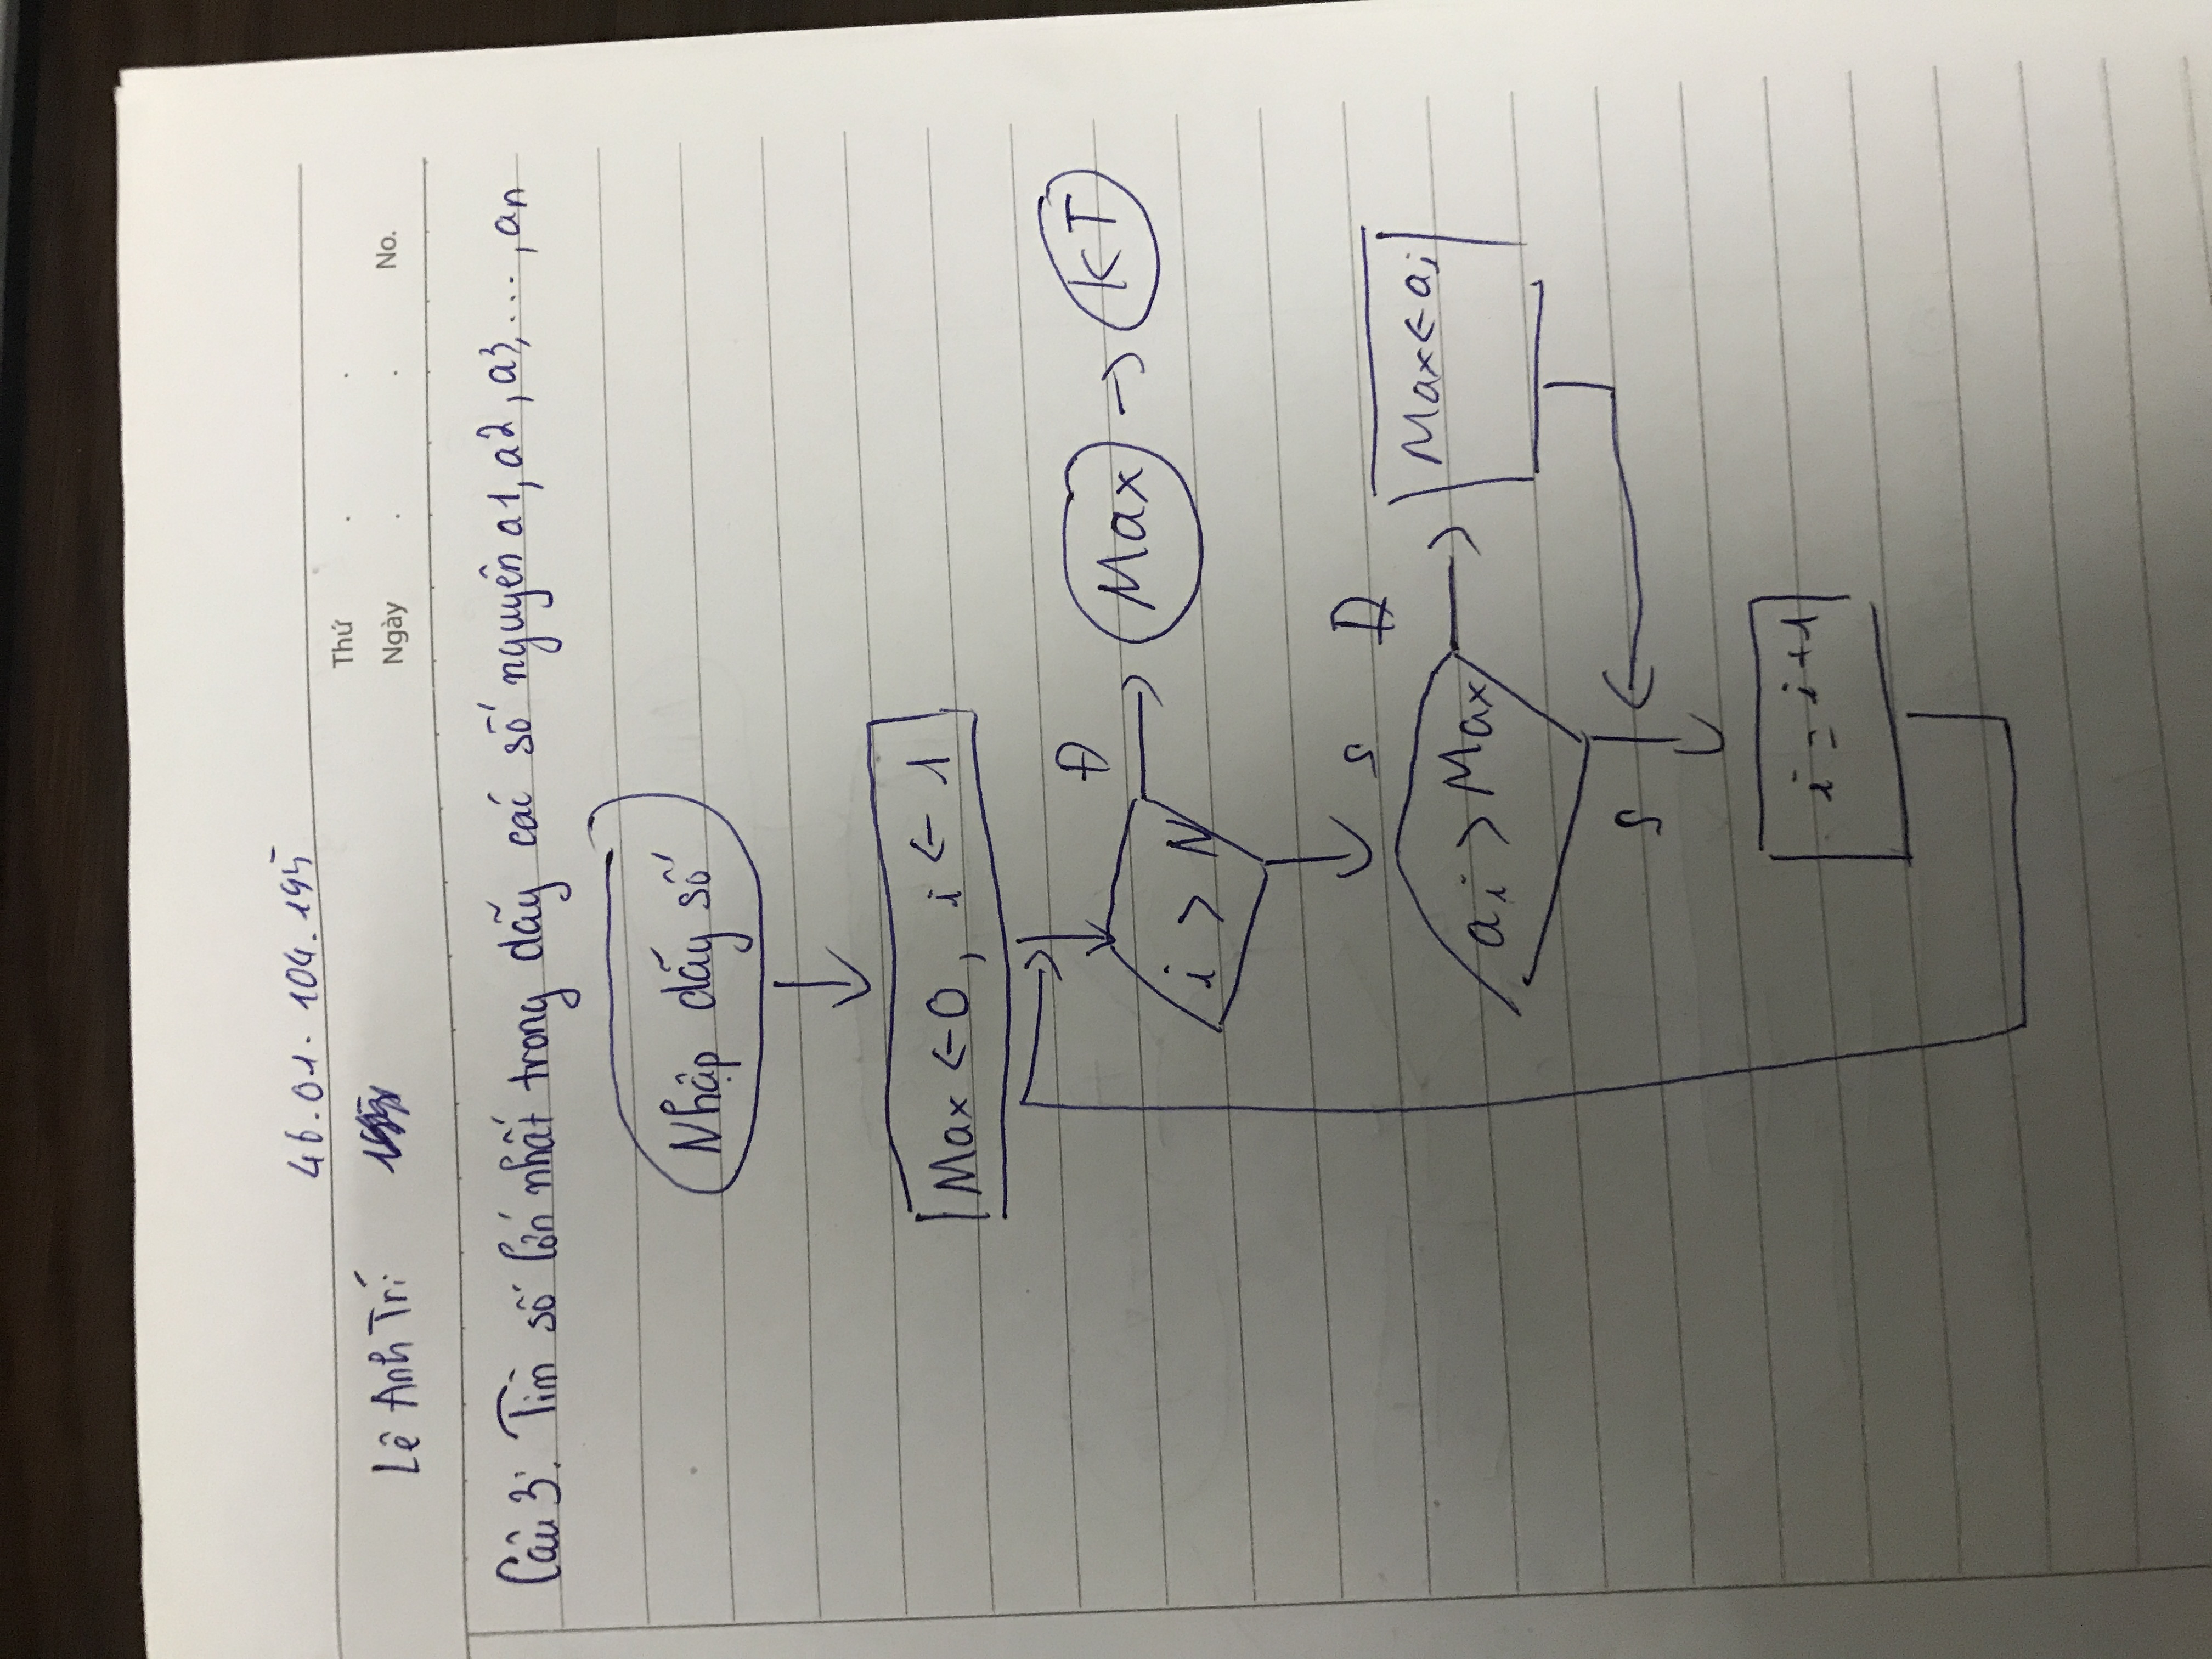 46.01.104.195
Thứ
Lê Anh Trí
Ngày
No.
Câu 3: Tìm số lớn nhất trong dãy các số nguyên a1, a2, a3, ..., an
Nhập dãy số
Max ← 0, i ← 1
i > N
Đ
Max
KT
S
ai > Max
Đ
Max ← ai
S
i = i + 1